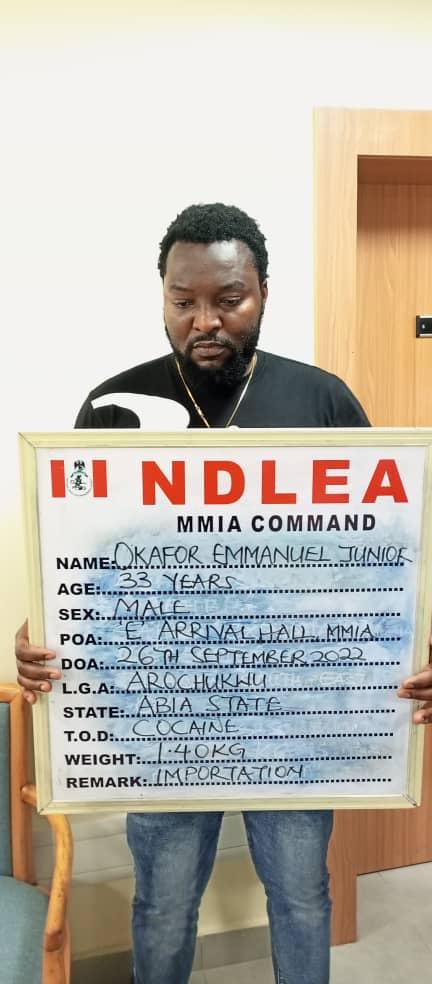 NDLEA
MMIA COMMAND
NAME: OKAFOR EMMANUEL JUNIOR
AGE: 33 YEARS
SEX: MALE
POA: 'E' ARRIVAL HALL, MMIA
DOA: 26TH SEPTEMBER 2022
L.G.A: AROCHUKWU
STATE: ABIA STATE
T.O.D: COCAINE
WEIGHT: 1.40KG
REMARK: IMPORTATION